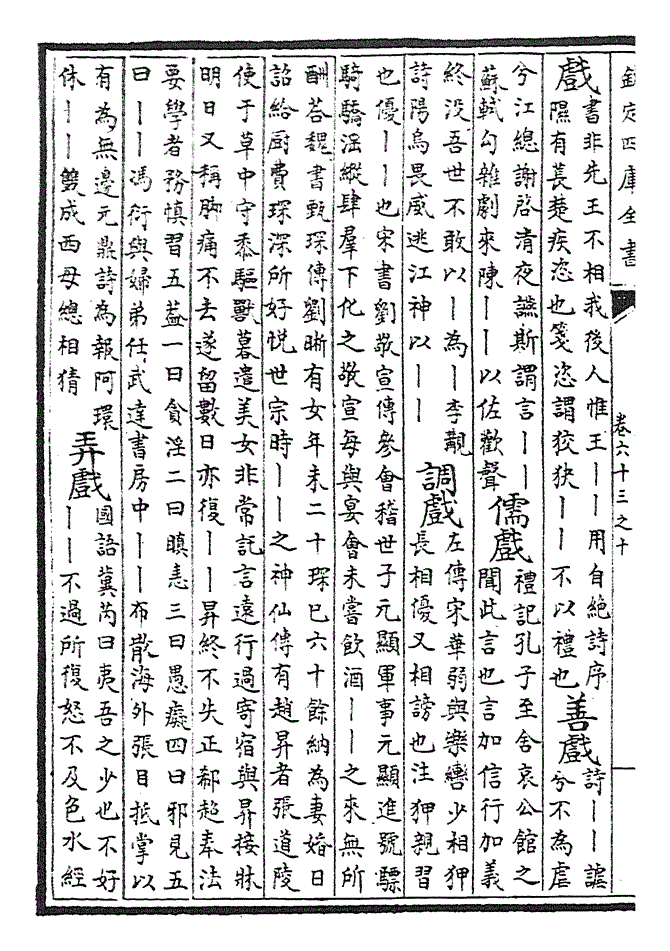 欽定四庫全書
卷六十三之十
戲
書非先王不相我後人惟王——用自絕詩序
隰有萇楚疾恣也箋恣謂狡狹——不以禮也
善戲
詩——謔
兮不為虐
兮江總謝啓清夜讌斯謂言——
蘇軾勾雜劇來陳——以佐歡聲
儒戲
禮記孔子至舍哀公館之
聞此言也言加信行加義
終没吾世不敢以—為—李覯
詩陽烏畏威逃江神以——
調戲
左傳宋華弱與樂轡少相狎
長相優又相謗也注狎親習
也優——也宋書劉敬宣傳參會稽世子元顯軍事元顯進號驃
騎驕淫縱肆羣下化之敬宣每與宴會未嘗飲酒——之來無所
酬荅魏書甄琛傳劉晰有女年未二十琛已六十餘納為妻婚日
詔給厨費琛深所好悦世宗時——之神仙傳有趙昇者張道陵
使于草中守黍驅獸暮遣美女非常託言遠行過寄宿與昇接牀
明日又稱脚痛不去遂留數日亦復——昇終不失正郗超奉法
要學者務慎習五葢一曰貪淫二曰瞋恚三曰愚癡四曰邪見五
曰——馮衍與婦弟任武達書房中——布散海外張目抵掌以
有為無邊元鼎詩為報阿環
休——䨇成西母總相猜
弄戲
國語冀芮曰夷吾之少也不好
——不過所復怒不及色水經